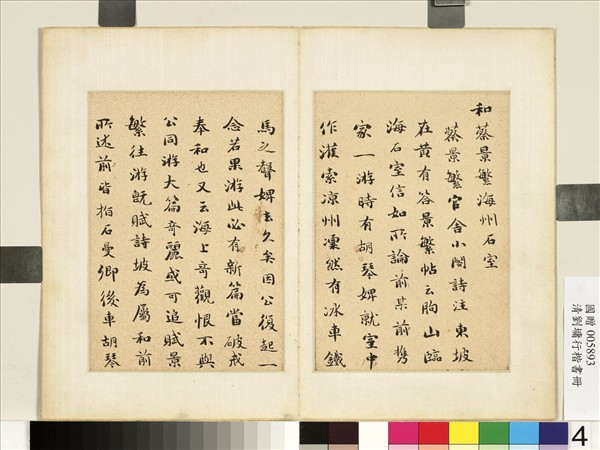 和蔡景繁海州石室
蔡景繁官舍小閣詩注東坡
在黃有答景繁帖云朐山臨
海石室信如所論前某前携
家一游時有胡琴婢就室中
作濩索涼州凜然有冰車鐵
馬之聲婢去久矣因公復起一
念若果游此必有新篇當破戒
奉和也又云海上奇觀恨不與
公同游大篇奇麗或可追賦景
繁往游既賦詩坡為屬和前
所述前皆指石曼卿後車胡琴
國贈 005893
清劉墉行楷書冊
4